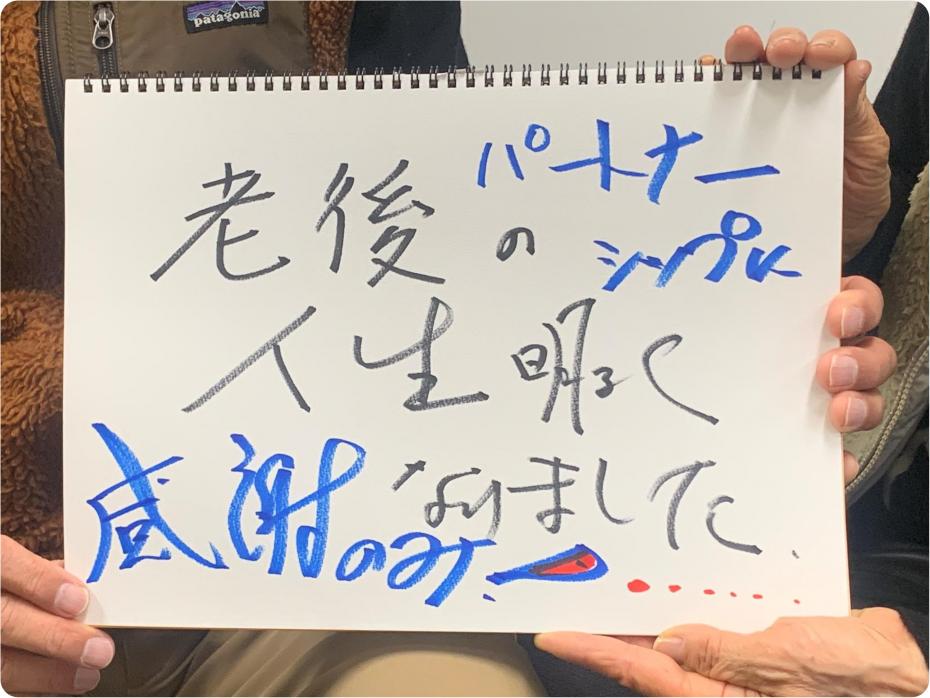 patagonia
老後の
人生明るく
なりました.
パートナー
シップに
感謝のみ!